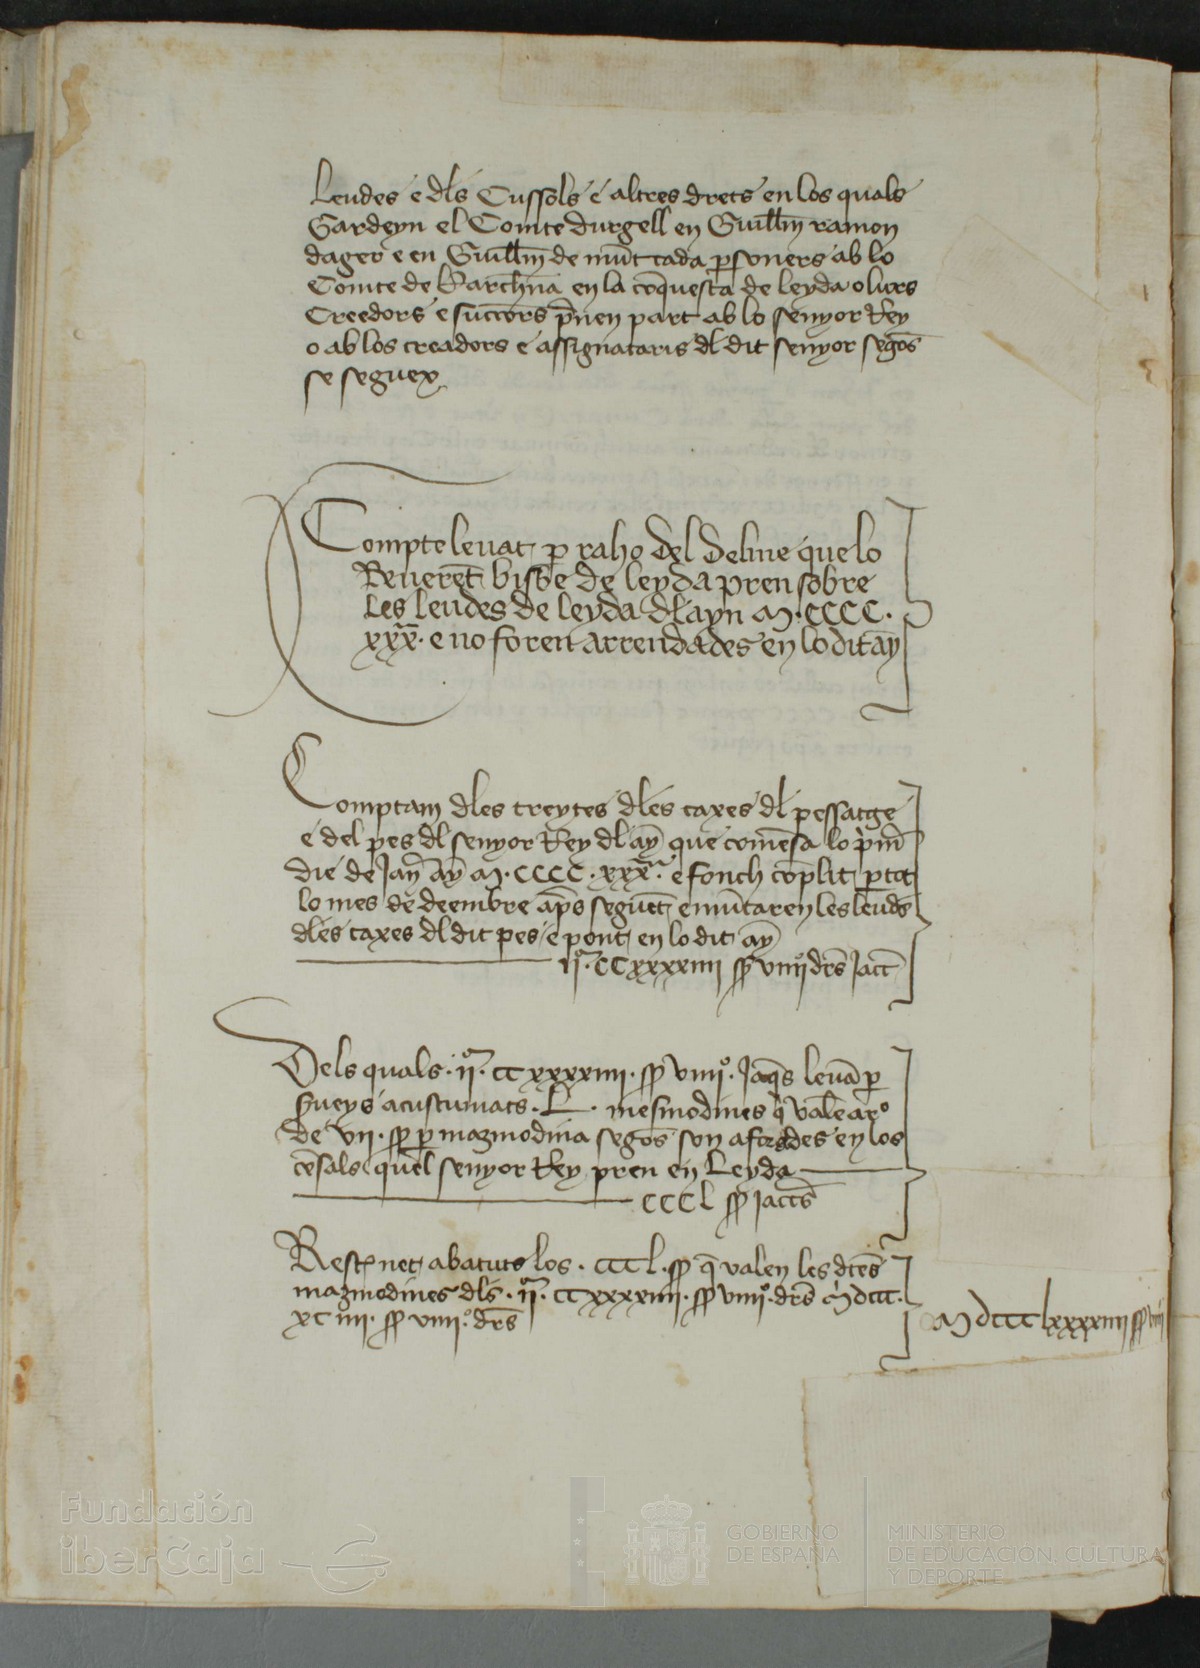 Leudes e dls Cussols e altres drets en los quals
Gardeyn el Comte durgell en Guillm ramon
dager e en Guillm de munt cada personers ab lo
Comte de Barchna en la coquesta de leyda o lurs
Creedors e succors prnen part ab lo senyor Rey
o ab los creadors e assignataris dl dit senyor segos
se seguex
Compte levat p raho del Delme que lo
Reueret bisbe de leyda pren sobre
Les leudes de leyda dl ayn M·CCCC·
xxx· e no foren arrendades en lo dit ay
Comptam dles treytes dles caxes dl pessatge
e del pes dl senyor Rey dl ay que comesa lo prim
die de Jan ay M·CCCC·xxx· e fonch coplit p tot
lo mes de deembre aps seguet e muntaren les leuds
dles caxes dl dit pes e pont en lo dit ay
II·CCxxxxiiii ss viiii drs Jacc
Dels quals·II·CCxxxxiiii·ss viiii·Jaqs leua p
Gueys acustumats·L·mesmodines q valen a ro
de vii·ss p mazmodina segos son afforades en los
cesals quel senyor Rey pren en Leyda
CCCL ss Jaccs
Rest net abatuts los·CCCL·ss q valen les dtes
mazmodines dls·II·CCxxxxiiii·ss viiii·drs M dccc·
xciiii·ss viiii·drs
M dccclxxxxiiii ss viiii
Fundación
iberCaja
GOBIERNO
DE ESPAÑA
MINISTERIO
DE EDUCACIÓN, CULTURA
Y DEPORTE